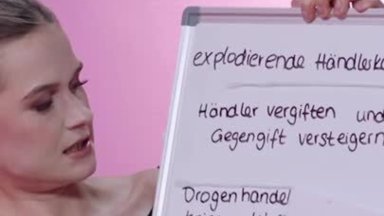 explodierende
Händler vergiften und
Gegengift versteigern
Drogenhandel